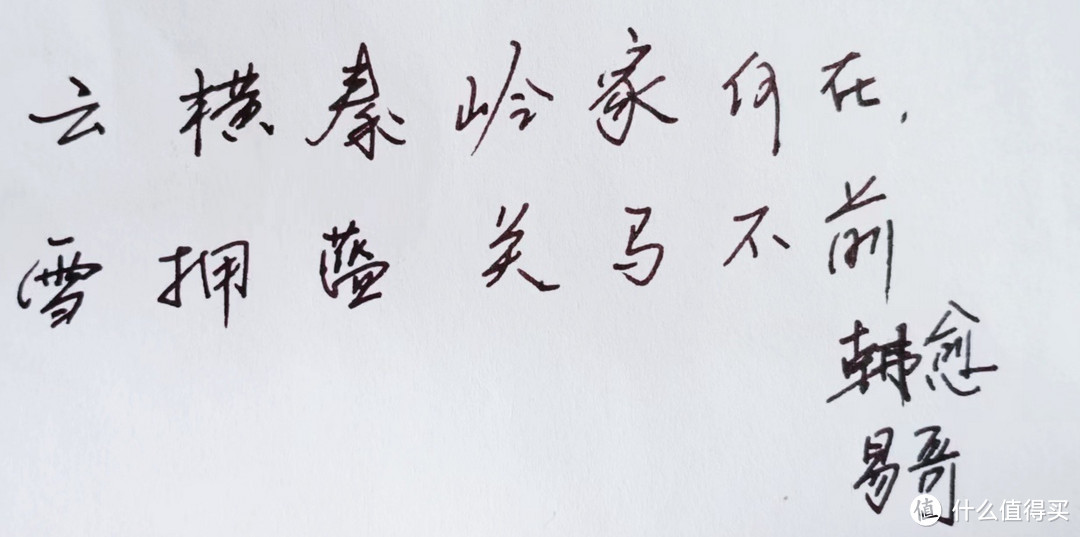 云横秦岭家何在，
雪拥蓝关马不前
韩愈
易哥
值 什么值得买